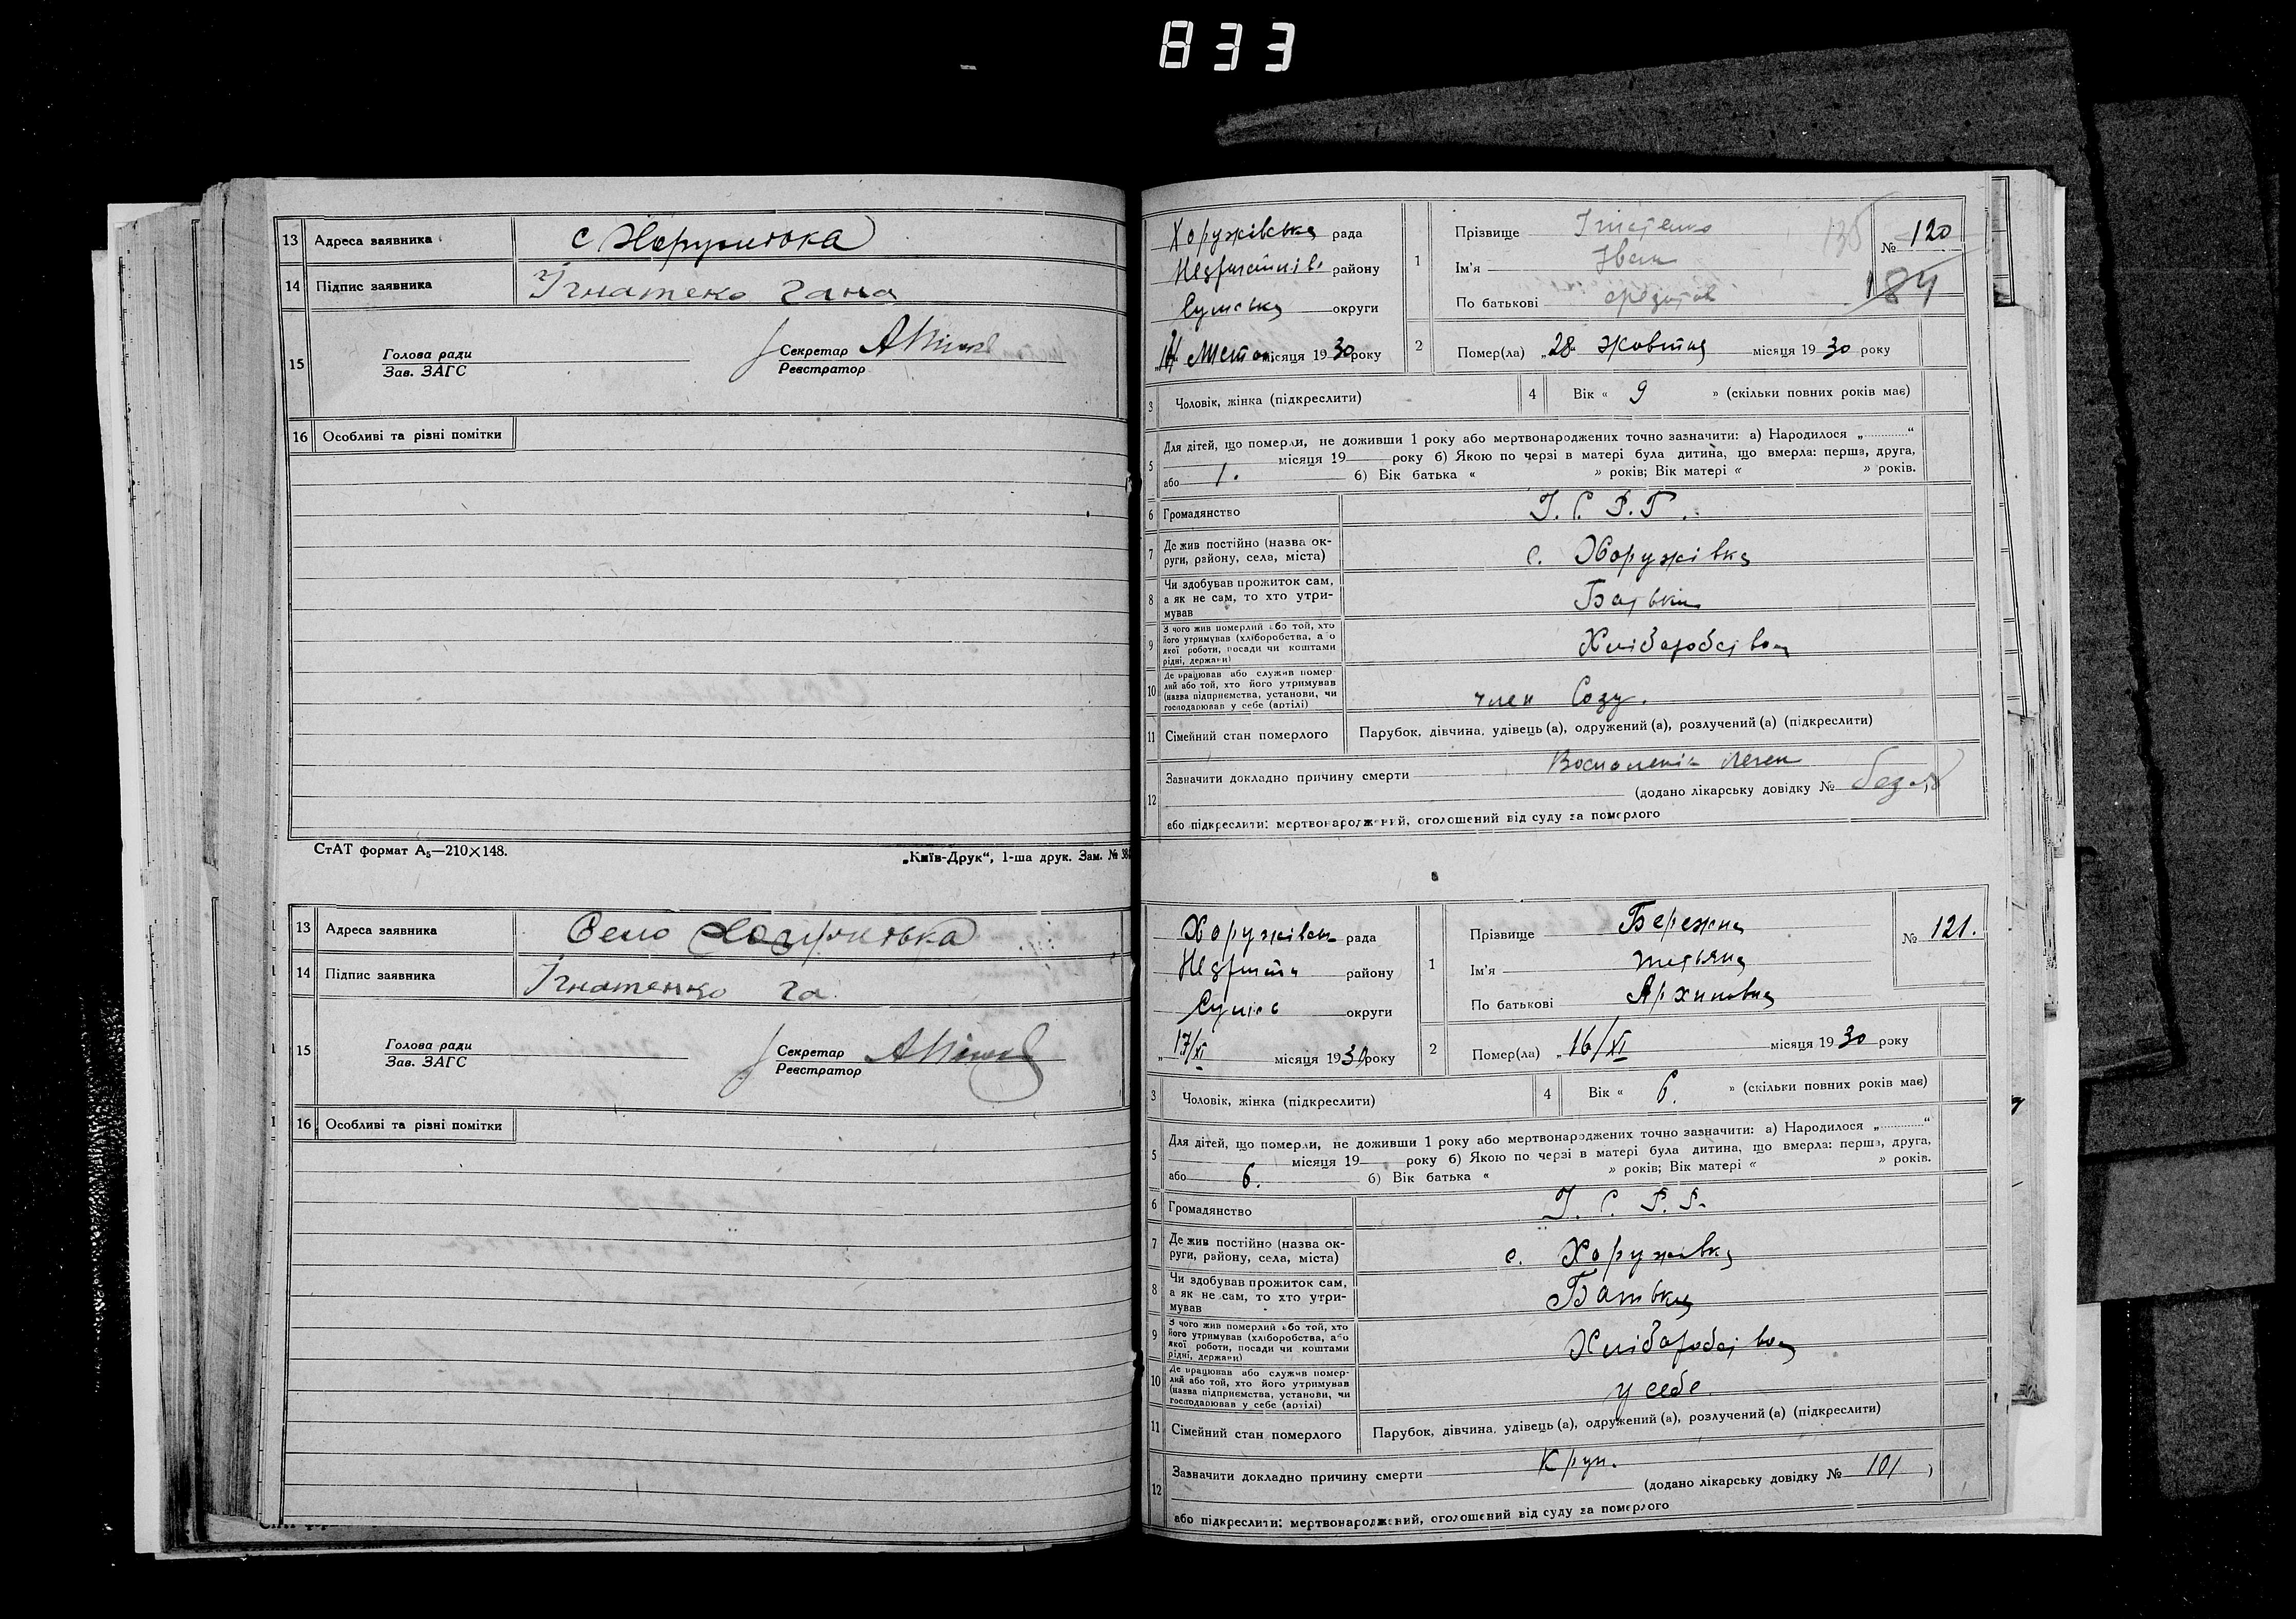 833
13 Адреса заявника с Хоружівка
14 Підпис заявника Ігнатенко Гана
15 Голова ради
Зав. ЗАГС
Секретар
Реєстратор
16 Особливі та різні помітки
СтАТ формат А5—210×148.
„Київ-Друк“, 1-ша друк. Зам. № 38
13 Адреса заявника Село
14 Підпис заявника Ігнатенко Га
15 Голова ради
Зав. ЗАГС
Секретар
Реєстратор
16 Особливі та різні помітки
Хоружівська рада
району
Сумська округи
місяця 1930 року
1 Прізвище
Ім'я Іван
По батькові
№ 120
184
135
2 Помер(ла) „28“ жовтня місяця 1930 року
3 Чоловік, жінка (підкреслити)
4 Вік « 9 » (скільки повних років має)
5 Для дітей, що померли, не доживши 1 року або мертвонароджених точно зазначити: а) Народилося „ “
місяця 19 року б) Якою по черзі в матері була дитина, що вмерла: перша, друга,
або 1. б) Вік батька « » років; Вік матері « » років.
6 Громадянство
7 Де жив постійно (назва ок-
руги, району, села, міста) с. Хоружівка
8 Чи здобував прожиток сам,
а як не сам, то хто утри-
мував Батьки
9 З чого жив померлий або той, хто
його утримував (хліборобства, або
якої роботи, посади чи коштами
рідні, держави) Хліборобством
10 Де працював або служив помер-
лий або той, хто його утримував
(назва підприємства, установи, чи
господарював у себе (артілі) член Созу.
11 Сімейний стан померлого Парубок, дівчина, удівець (а), одружений (а), розлучений (а) (підкреслити)
12 Зазначити докладно причину смерти Воспаленія леген
(додано лікарську довідку №
або підкреслити: мертвонароджений, оголошений від суду за померлого
Хоружівськ рада
району
округи
„17/XI місяця 1930 року
1 Прізвище Бережна
Ім'я Тетьяна
По батькові Архиповна
№ 121.
2 Помер(ла) „16/XI місяця 1930 року
3 Чоловік, жінка (підкреслити)
4 Вік « 6. » (скільки повних років має)
5 Для дітей, що померли, не доживши 1 року або мертвонароджених точно зазначити: а) Народилося „ “
місяця 19 року б) Якою по черзі в матері була дитина, що вмерла: перша, друга,
або 6. б) Вік батька « » років; Вік матері « » років.
6 Громадянство
7 Де жив постійно (назва ок-
руги, району, села, міста) с. Хоружівка
8 Чи здобував прожиток сам,
а як не сам, то хто утри-
мував Батьки
9 З чого жив померлий або той, хто
його утримував (хліборобства, або
якої роботи, посади чи коштами
рідні, держави) Хліборобством
10 Де працював або служив помер-
лий або той, хто його утримував
(назва підприємства, установи, чи
господарював у себе (артілі) у себе.
11 Сімейний стан померлого Парубок, дівчина, удівець (а), одружений (а), розлучений (а) (підкреслити)
12 Зазначити докладно причину смерти Круп.
(додано лікарську довідку № 101 )
або підкреслити: мертвонароджений, оголошений від суду за померлого